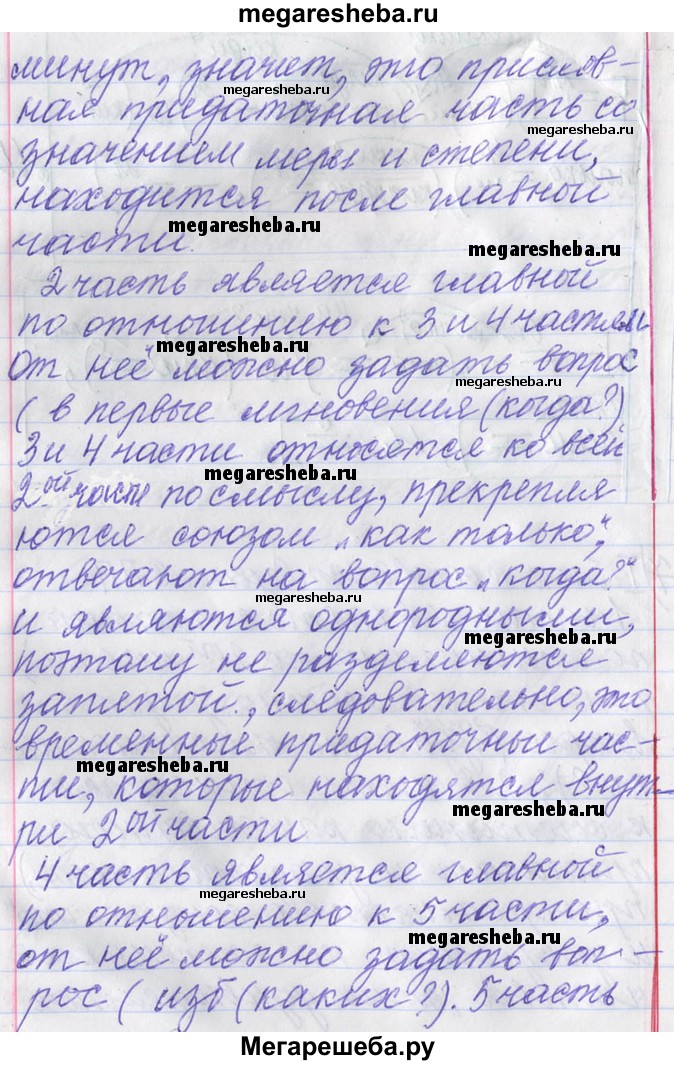 megaresheba.ru
минут, значит, это прислов-
megaresheba.ru
ная придаточная часть со
megaresheba.ru
значением меры и степени,
находится после главной
megaresheba.ru
части.
megaresheba.ru
2 часть является главной
по отношинию к 3 и 4 частям
megaresheba.ru
От неё можно задать вопрос
megaresheba.ru
( в первые мгновения (когда?)
3 и 4 части относятся ко всей
megaresheba.ru
2ой части по смыслу, прекрепля
ются союзом „как только",
отвечают на вопрос „когда?"
megaresheba.ru
и являются однородными,
megaresheba.ru
поэтому не разделяются
запятой., следовательно, это
временные придаточные час-
megaresheba.ru
ти, которые находятся внут-
megaresheba.ru
ри 2ой части
4 часть является главной
megaresheba.ru
по отношению к 5 части,
megaresheba.ru
от неё можно задать воп-
рос ( изб (каких?). 5 часть
Мегарешеба.ру